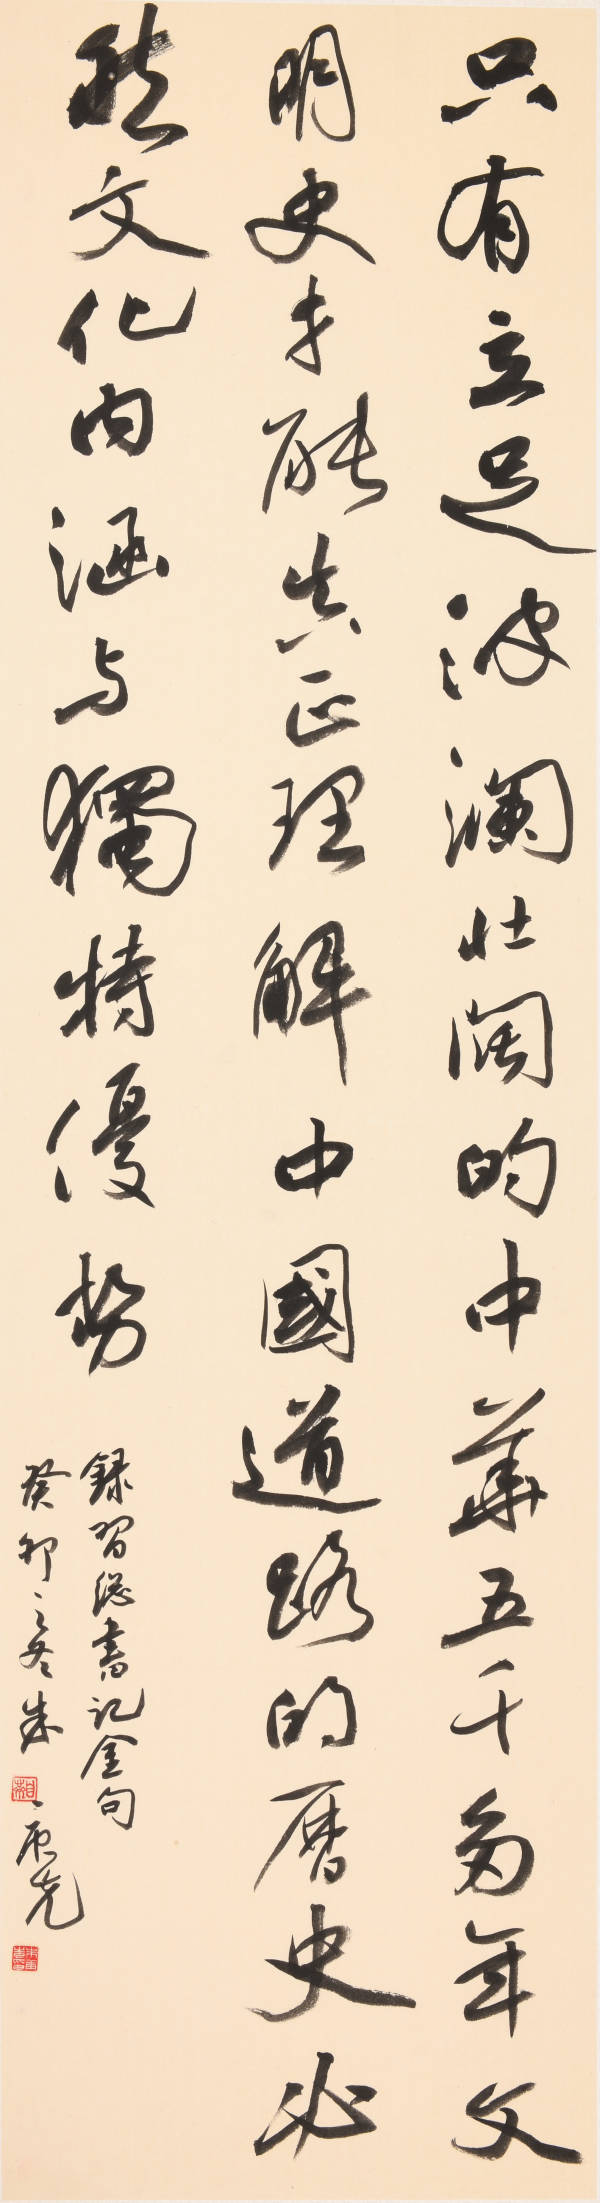 只有立足波澜壮阔的中華五千多年文
明史才能真正理解中國道路的历史必
然文化内涵与獨特優势
録習总書记金句
癸卯之冬朱